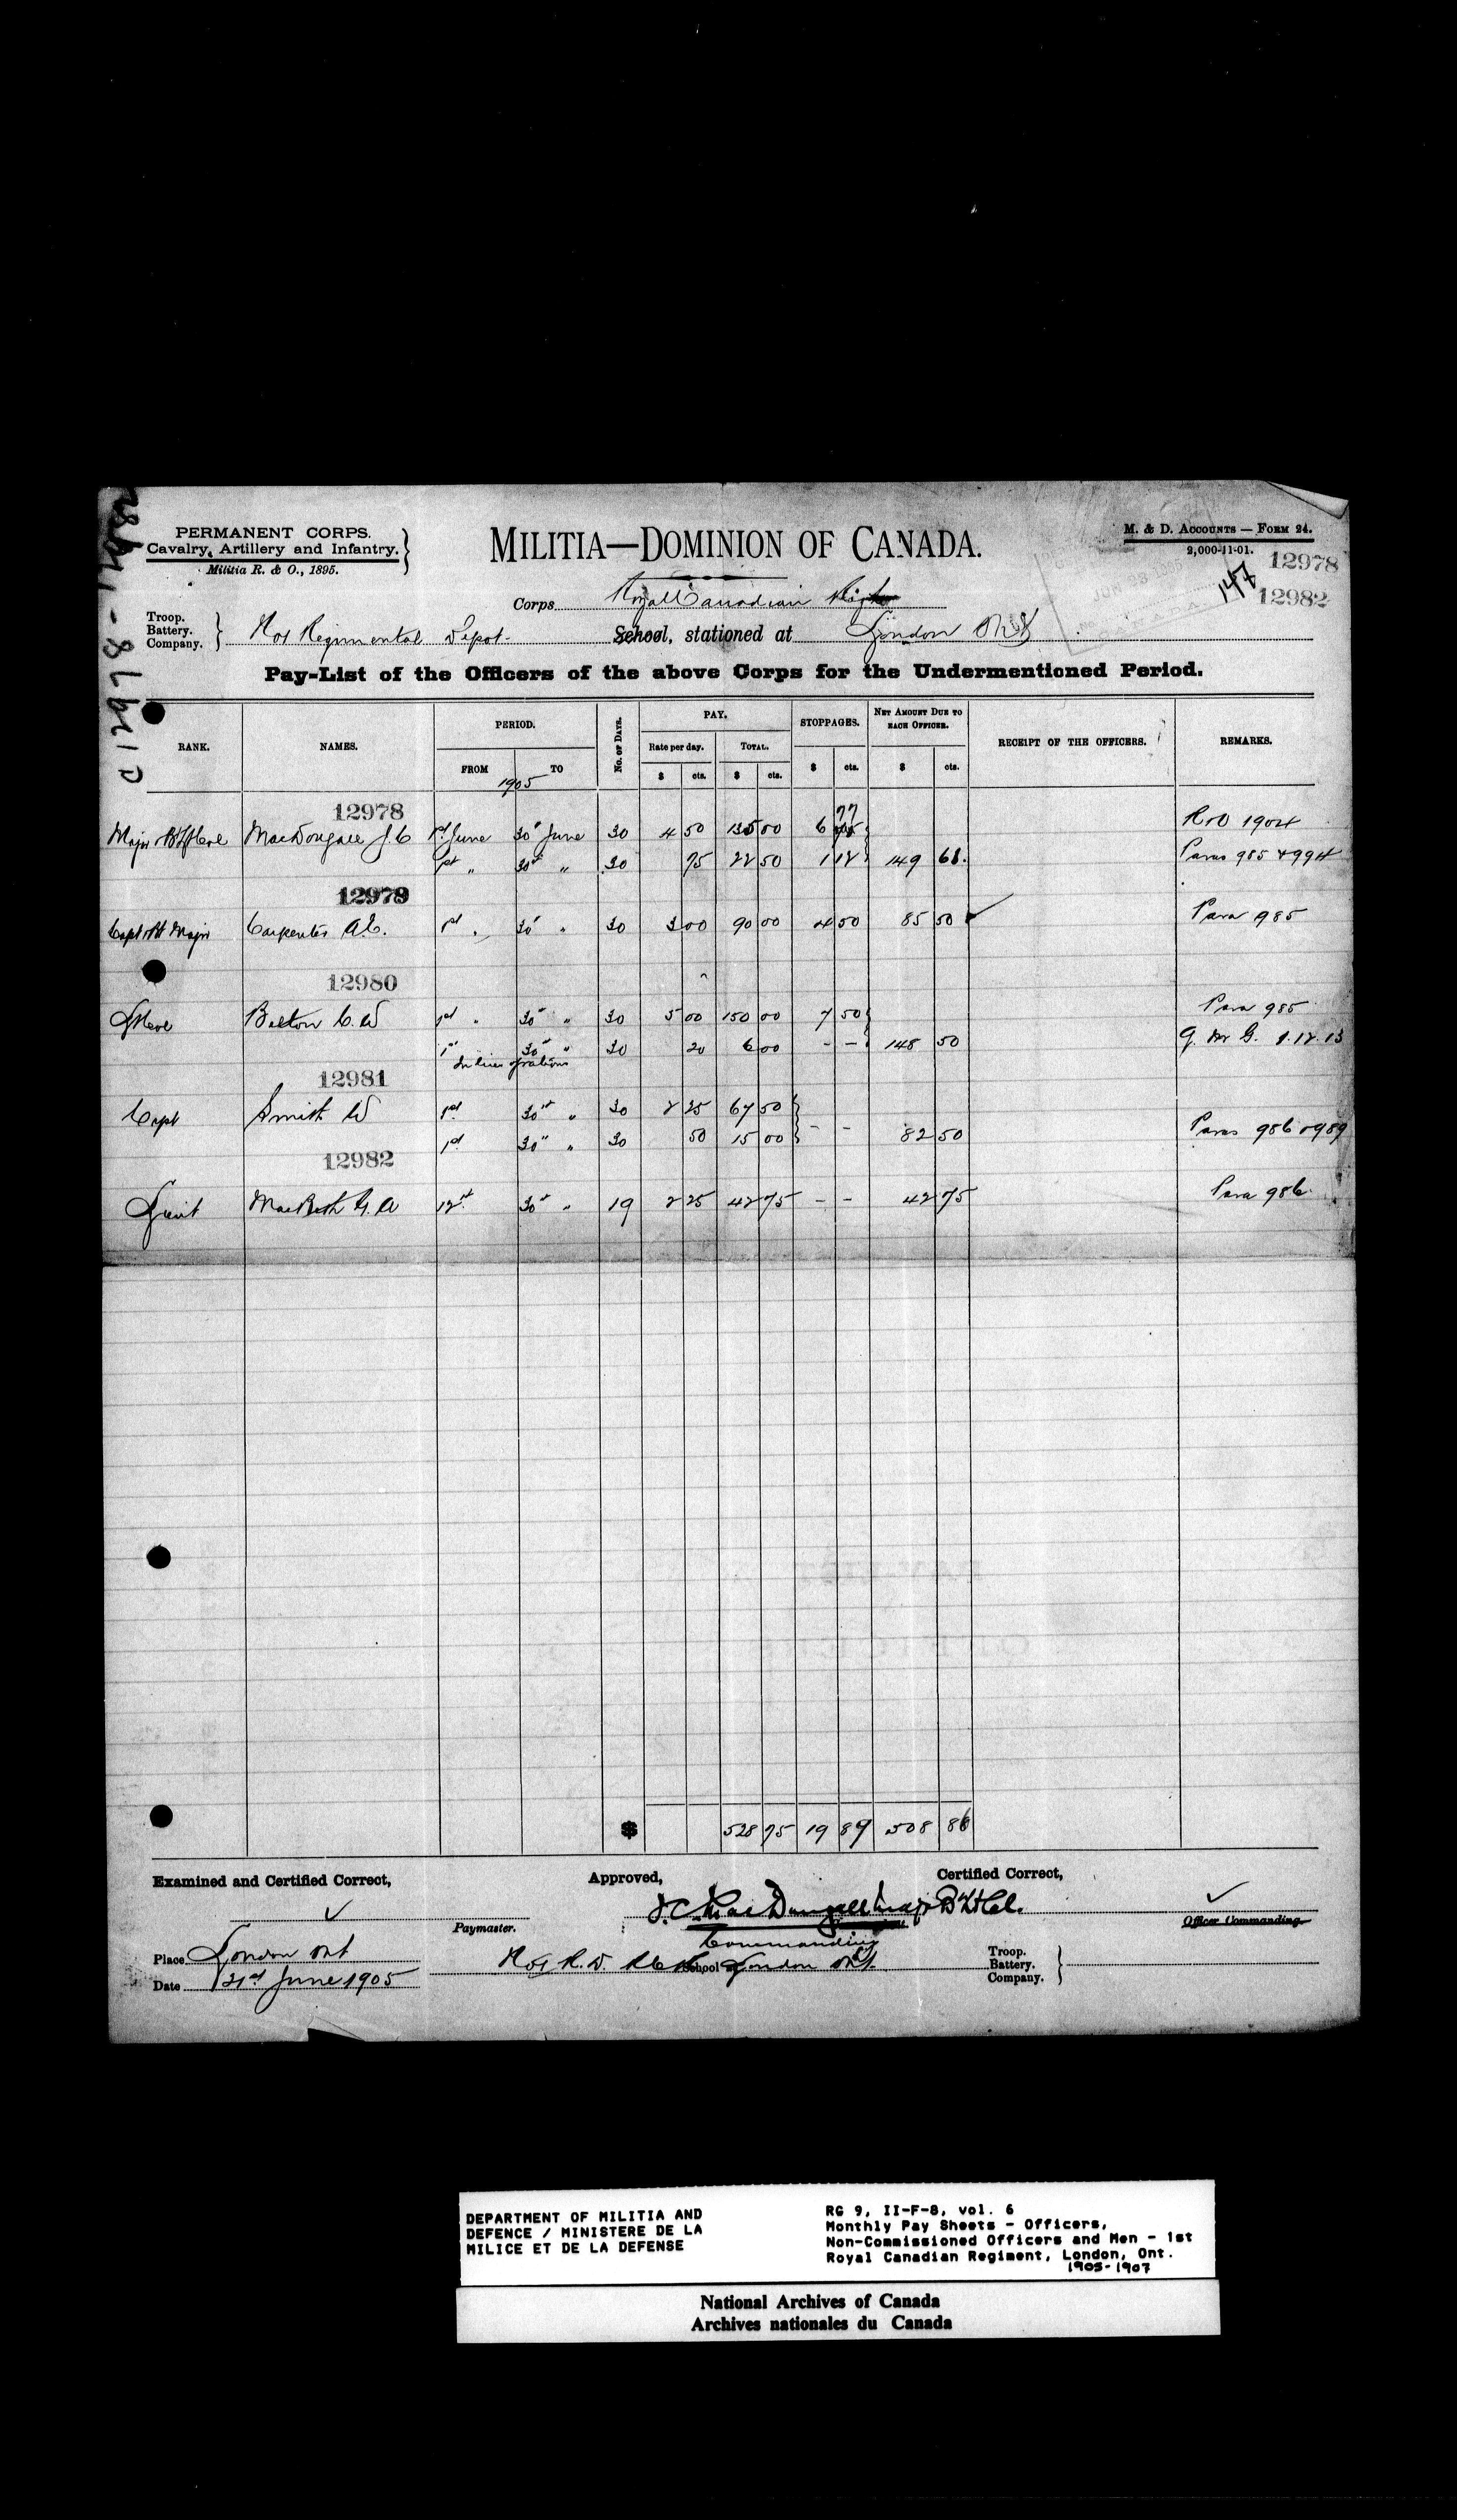 PERMANENT CORPS.
Cavalry, Artillery and Infantry.
Militia R. & O., 1895.
MILITIA—DOMINION OF CANADA.
M. & D. ACCOUNTS — FORM 24.
2,000-11-01.
12978
147
12982
12978 - 12982
Corps Royal Canadian Regt
Troop.
Battery.
Company.
No 1 Regimental Depot - School, stationed at London Ont
Pay-List of the Officers of the above Corps for the Undermentioned Period.
RANK. NAMES. PERIOD. No. OF DAYS. PAY. STOPPAGES. NET AMOUNT DUE TO EACH OFFICER. RECEIPT OF THE OFFICERS. REMARKS.
Rate per day. TOTAL.
FROM TO $ cts. $ cts. $ cts. $ cts.
1905
12978
Major Bt Lt Col MacDougall J.C 1st June 30th June 30 4 50 135 00 6 77 R & O 1904
1st „ 30th „ 30 75 22 50 1 12 149 61 Paras 985 & 994
12979
Capt Bt Major Carpenter A.E. 1st „ 30 „ 30 3 00 90 00 4 50 85 50 Para 985
12980
Lt Col Belton C.W 1st „ 30th „ 30 5 00 150 00 7 50 Para 985
1st 30th „ 30 20 6 00 - - 148 50 Q. M. G. 1.12.13
In lieu of rations
12981
Capt Smith W 1st 30th „ 30 2 25 67 50
1st 30th „ 30 50 15 00 - - 82 50 Paras 986 & 989
12982
Lieut MacBeth G.A 12th 30th „ 19 2 25 42 75 - - 42 75 Para 986
$ 528 75 19 89 508 86
Examined and Certified Correct, Approved, Certified Correct,
J.C. MacDougall Major Bt Lt Col.
Paymaster. Commanding Officer Commanding.
Place London Ont
No 1 R.D. RCR School London Ont.
Troop.
Battery.
Company.
Date 21st June 1905
DEPARTMENT OF MILITIA AND
DEFENCE / MINISTERE DE LA
MILICE ET DE LA DEFENSE
RG 9, II-F-8, vol. 6
Monthly Pay Sheets - Officers,
Non-Commissioned Officers and Men - 1st
Royal Canadian Regiment, London, Ont.
1905-1907
National Archives of Canada
Archives nationales du Canada